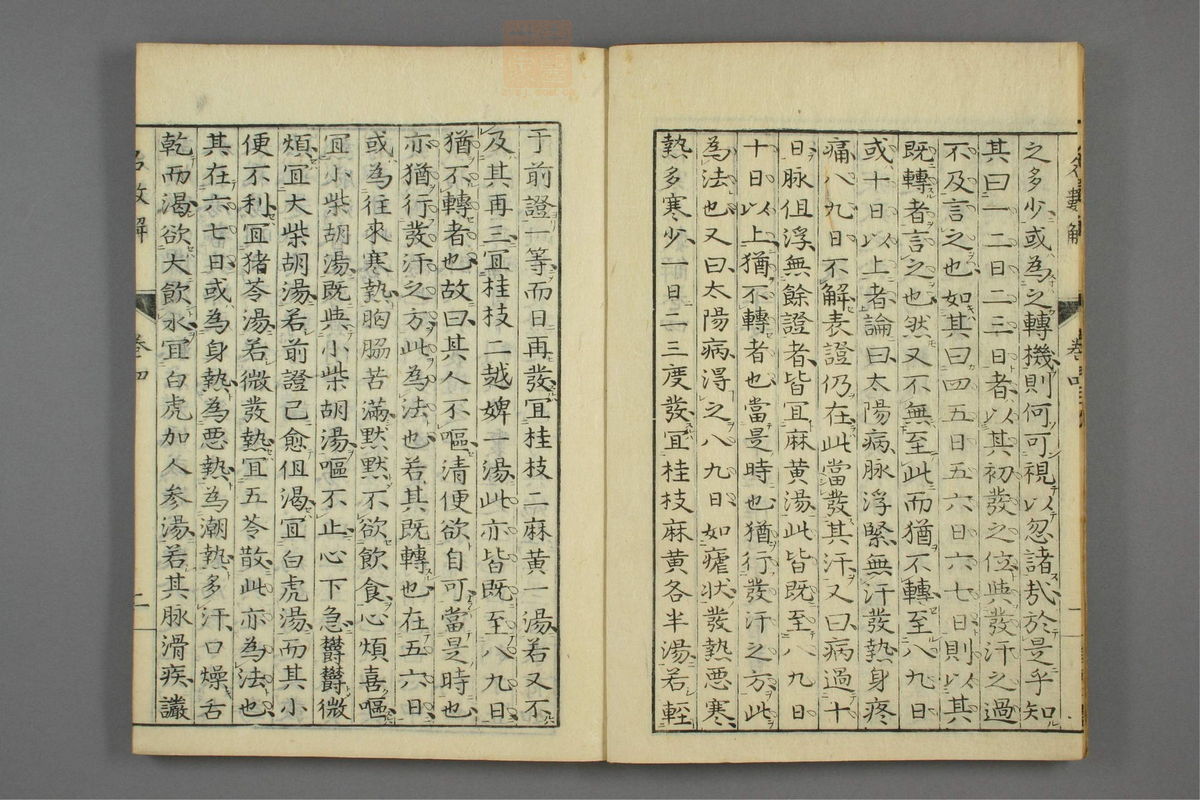 之多少或為之轉機則何可視以忽諸哉於是乎知
其曰一二日二三日者以其初發之位與發汗之過
不及言之也如其曰四五日五六日六七日則以其
既轉者言之也然又不無至此而猶不轉至八九日
或十日以上者論曰太陽病脉浮緊無汗發熱身疼
痛八九日不解表證仍在此當發其汗又曰病過十
日脉但浮無餘證者皆冝麻黄湯此皆既至八九日
十日以上猶不轉者也當是時也猶行發汗之方此
為法也又曰太陽病得之八九日如瘧状發熱悪寒
熱多寒少一日二三度發冝桂枝麻黄各半湯若輕
于前證一等而日再發冝桂枝二麻黄一湯若又不
及其再三冝桂枝二越婢一湯此亦皆既至八九日
猶不轉者也故曰其人不嘔清便欲自可當是時也
亦猶行發汗之方此為法也若其既轉也在五六日
或為往來寒熱胸脇苦滿默默不欲飲食心煩喜嘔
冝小柴胡湯既與小柴胡湯嘔不止心下急欝欝微
煩冝大柴胡湯若前證已愈但渴冝白虎湯而其小
便不利冝猪苓湯若微發熱冝五苓散此亦為法也
其在六七日或為身熱為悪熱為潮熱多汗口燥舌
乾而渴欲大飲水冝白虎加人参湯若其脉滑疾讝
卷四
二